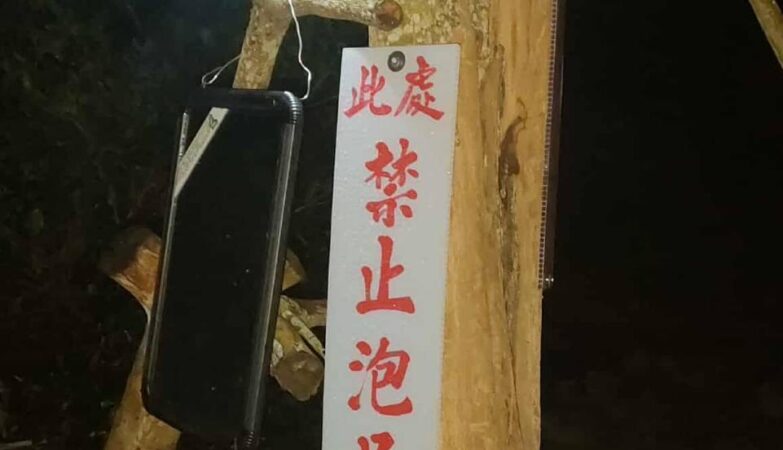 此處
禁止泡